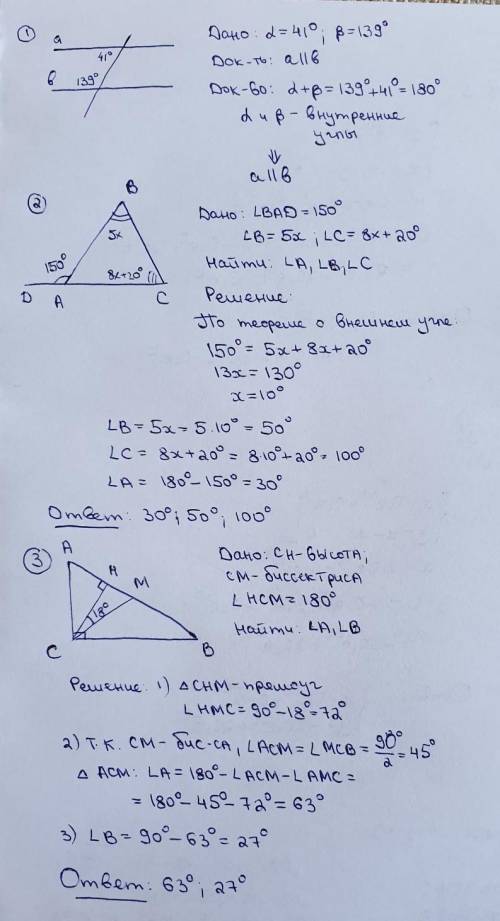 ① a
41°
b
139°
Дано: α = 41°; β = 139°
Док-ть: a || b
Док-во: α + β = 139° + 41° = 180°
α и β – внутренние
углы
⇓
a || b
② B
5x
150°
8x+20°
D A C
Дано: ∠BAD = 150°
∠B = 5x ; ∠C = 8x + 20°
Найти: ∠A, ∠B, ∠C
Решение:
По теореме о внешнем угле:
150° = 5x + 8x + 20°
13x = 130°
x = 10°
∠B = 5x = 5·10° = 50°
∠C = 8x + 20° = 8·10° + 20° = 100°
∠A = 180° – 150° = 30°
Ответ: 30°; 50°; 100°
③ A
H
M
18°
C B
Дано: CH – высота;
CM – биссектриса
∠HCM = 180°
Найти: ∠A, ∠B
Решение: 1) △CHM – прямоуг
∠HMC = 90° – 18° = 72°
2) т.к. CM – бис-са, ∠ACM = ∠MCB = 90°/2 = 45°
△ ACM: ∠A = 180° – ∠ACM – ∠AMC =
= 180° – 45° – 72° = 63°
3) ∠B = 90° – 63° = 27°
Ответ: 63°; 27°